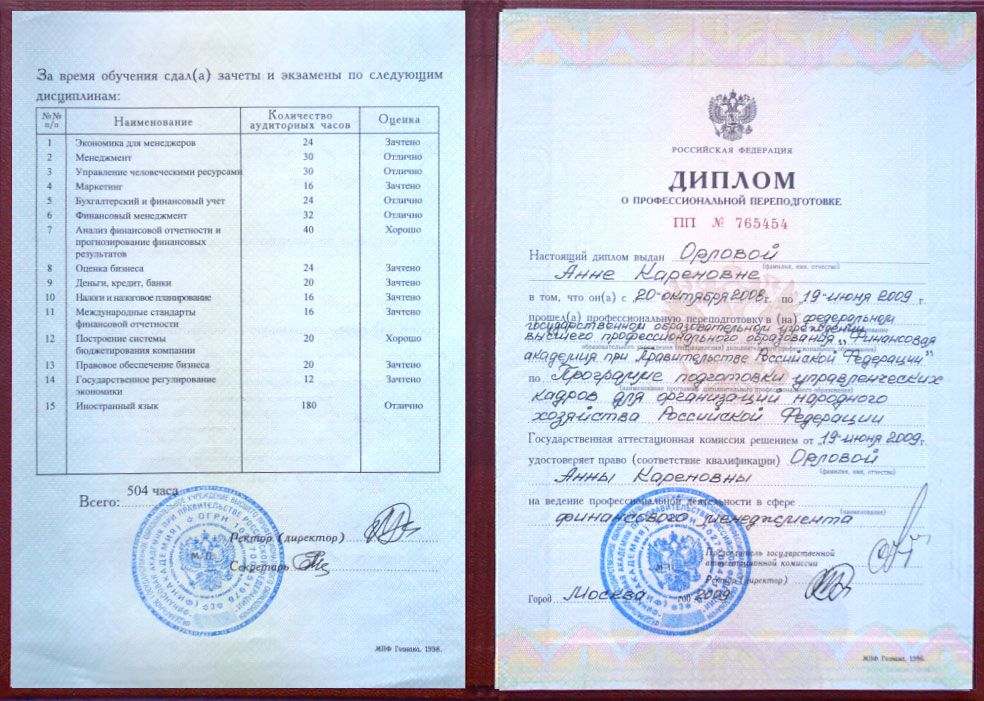 За время обучения сдал(а) зачеты и экзамены по следующим
дисциплинам:
№№ п/п Наименование Количество аудиторных часов Оценка
1 Экономика для менеджеров 24 Зачтено
2 Менеджмент 30 Отлично
3 Управление человеческими ресурсами 30 Отлично
4 Маркетинг 16 Зачтено
5 Бухгалтерский и финансовый учет 24 Отлично
6 Финансовый менеджмент 32 Отлично
7 Анализ финансовой отчетности и 40 Хорошо
прогнозирование финансовых
результатов
8 Оценка бизнеса 24 Зачтено
9 Деньги, кредит, банки 20 Зачтено
10 Налоги и налоговое планирование 16 Зачтено
11 Международные стандарты 16 Зачтено
финансовой отчетности
12 Построение системы 20 Хорошо
бюджетирования компании
13 Правовое обеспечение бизнеса 20 Зачтено
14 Государственное регулирование 12 Зачтено
экономики
15 Иностранный язык 180 Отлично
Всего: 504 часа
Ректор (директор)
Секретарь
М. П.
МПФ Гознака, 1998.
РОССИЙСКАЯ ФЕДЕРАЦИЯ
ДИПЛОМ
О ПРОФЕССИОНАЛЬНОЙ ПЕРЕПОДГОТОВКЕ
ПП № 765454
Настоящий диплом выдан Орловой
(фамилия, имя, отчество)
Анне Кареновне
в том, что он(а) с 20 октября 2008 г. по 19 июня 2009 г.
прошел(а) профессиональную переподготовку в (на) федеральном
государственном образовательном учреждении
высшего профессионального образования „Финансовая
академия при Правительстве Российской Федерации"
по Программе подготовки управленческих
кадров для организаций народного
хозяйства Российской Федерации
Государственная аттестационная комиссия решением от 19 июня 2009 г.
удостоверяет право (соответствие квалификации) Орловой
(фамилия, имя, отчество)
Анны Кареновны
на ведение профессиональной деятельности в сфере
(наименование)
финансового менеджмента
Председатель государственной
аттестационной комиссии
Ректор (директор)
Город Москва год 2009
МПФ Гознака, 1998.